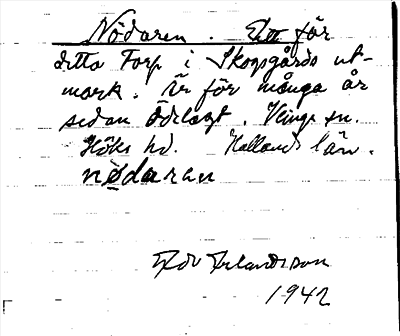 Nödaren. Ett för
detta Torp i Skogsgårds ut-
mark. Är för många år
sedan ödelagt. Veinge sn.
Höks hd. Hallands län.
nödaran
Edv Erlandsson
1942